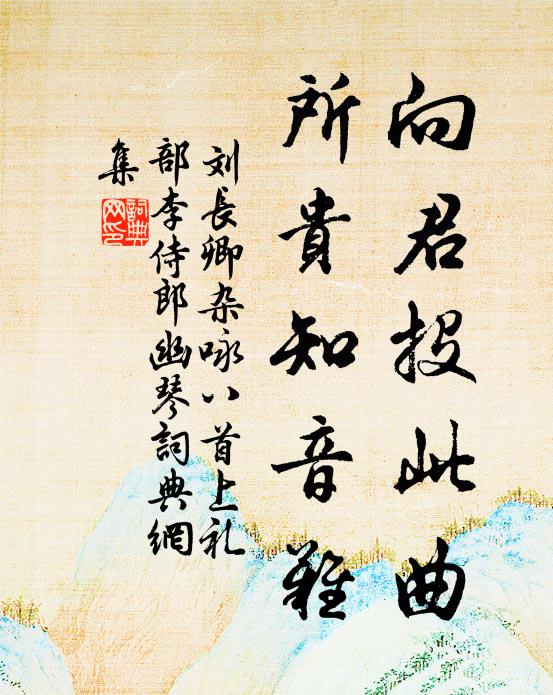 向君投此曲
所貴知音難
刘長卿杂咏八首上礼
部李侍郎幽琴詞典網
集
詞典
网印